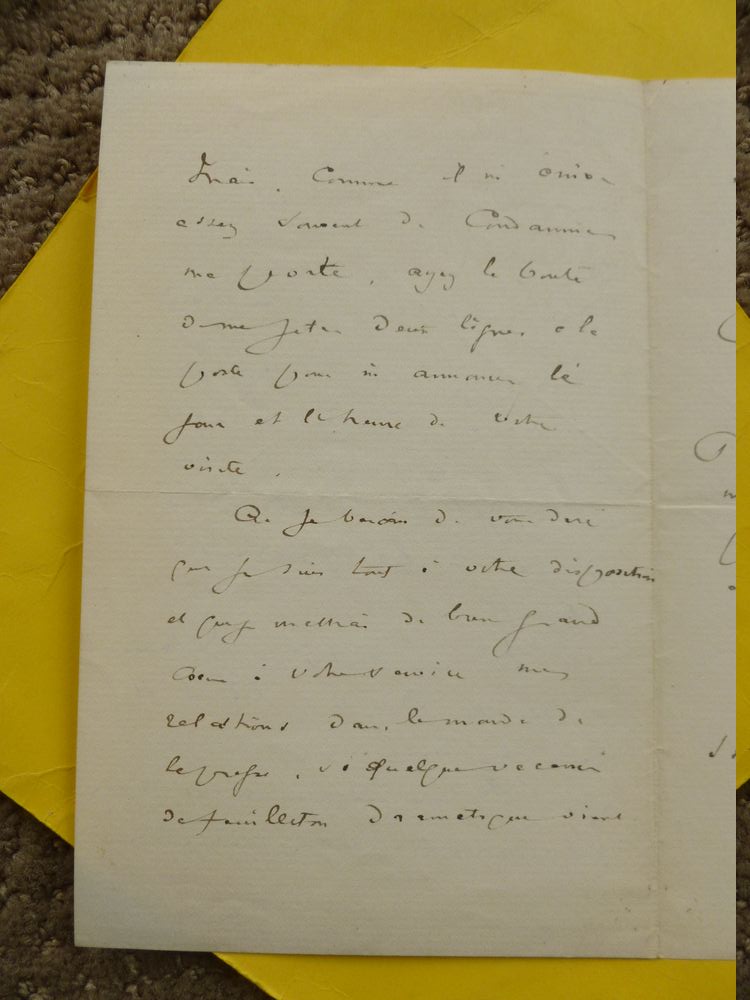 Mais, comme il m'arrive
assez souvent de condamner
ma porte, ayez la bonté
de me jeter deux lignes à la
poste pour m'annoncer le
jour et l'heure de votre
visite.
je besoin de vous dire
que je suis tout à votre disposition
et que je mettrai de bien grand
coeur à votre service mes
relations dans le monde de
la presse, si quelque vacance
de feuilleton dramatique vient